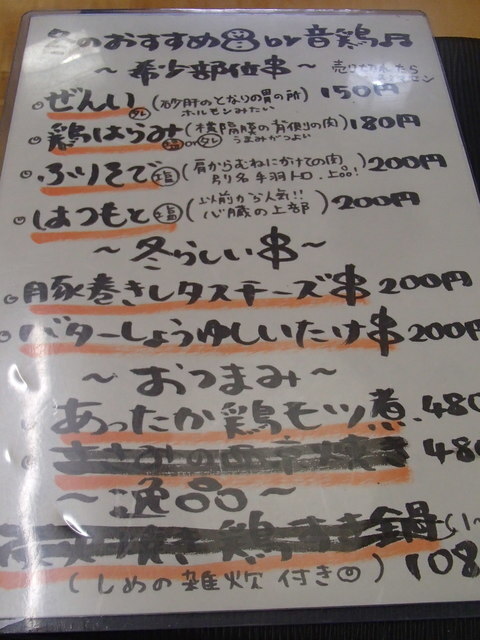 冬のおすすめ by 音鶏♬
～希少部位串～
売り切れたら
ぜんい タレ (砂肝のとなりの胃の所 ホルモンみたい) 150円
鶏はらみ 塩 or タレ (横隔膜の背側の肉 うまみがつよい) 180円
ふりそで 塩 (肩からむねにかけての肉 別名 手羽トロ.上品!) 200円
はつもと 塩 (以前から人気!! 心臓の上部) 200円
～冬らしい串～
豚巻きレタスチーズ串 200円
バターしょうゆしいたけ串 200円
～おつまみ～
あったか鶏モツ煮 480
ささみの西京焼き 480
～逸品～
焼き鶏すき鍋 (1~
108
(しめの雑炊 付き)